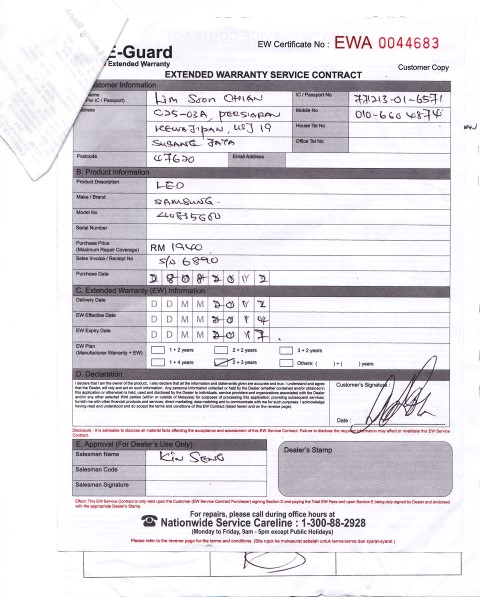 E-Guard
Extended Warranty
EW Certificate No : EWA 0044683
Customer Copy
EXTENDED WARRANTY SERVICE CONTRACT
Customer Information
Name
(Per IC / Passport)
Lim Soon
IC / Passport No
771213-01-6571
Address
C25-03A, PERSIARAN
Mobile No
010-660 4874
KEWAJIPAN, USJ 19
House Tel No
SUBANG JAYA
Office Tel No
Postcode
47620
Email Address
B. Product Information
Product Description
LED
Make / Brand
SAMSUNG
Model No
Serial Number
Purchase Price
(Maximum Repair Coverage)
RM 1940
Sales Invoice / Receipt No
S/N 6890
Purchase Date
C. Extended Warranty (EW) Information
Delivery Date
D D M M
EW Effective Date
D D M M
EW Expiry Date
D D M M
EW Plan
(Manufacturer Warranty + EW)
1 + 2 years
2 + 2 years
3 + 2 years
1 + 4 years
2 + 3 years
Others: ( ) + ( ) years
D. Declaration
I declare that I am the owner of the product. I also declare that all the information and statements given are accurate and true. I understand and agree
that the Dealer, will rely and act on such information. Any personal information collected or held by the Dealer (whether contained and/or obtained in
this application or otherwise) is held, used and disclosed by the Dealer to individuals, service providers and organizations associated with the Dealer
and/or any other selected third parties (within or outside of Malaysia) for purposes of processing this application, providing subsequent services;
furnish me with other financial products and services; direct marketing; data matching and to communicate with me for such purposes. I acknowledge
having read and understood and do accept the terms and conditions of this EW Contract (listed herein and on the reverse page).
Customer's Signature :
Date :
Disclosure : It is advisable to disclose all material facts affecting the acceptance and assessment of this EW Service Contract. Failure to disclose the required information may effect or invalidate this EW Service
Contract.
E. Approval (For Dealer's Use Only)
Salesman Name
KIN SENG
Salesman Code
Salesman Signature
Dealer's Stamp
Effect: This EW Service Contract is only valid upon the Customer (EW Service Contract Purchaser) signing Section D and paying the Total EW Fees and upon Section E being duly signed by Dealer and endorsed
with the appropriate Dealer's Stamp.
For repairs, please call during office hours at
Nationwide Service Careline : 1-300-88-2928
(Monday to Friday, 9am - 5pm except Public Holidays)
Please refer to the reverse page for the terms and conditions. (Sila rujuk ke mukasurat sebelah untuk terma-terma dan syarat-syarat.)